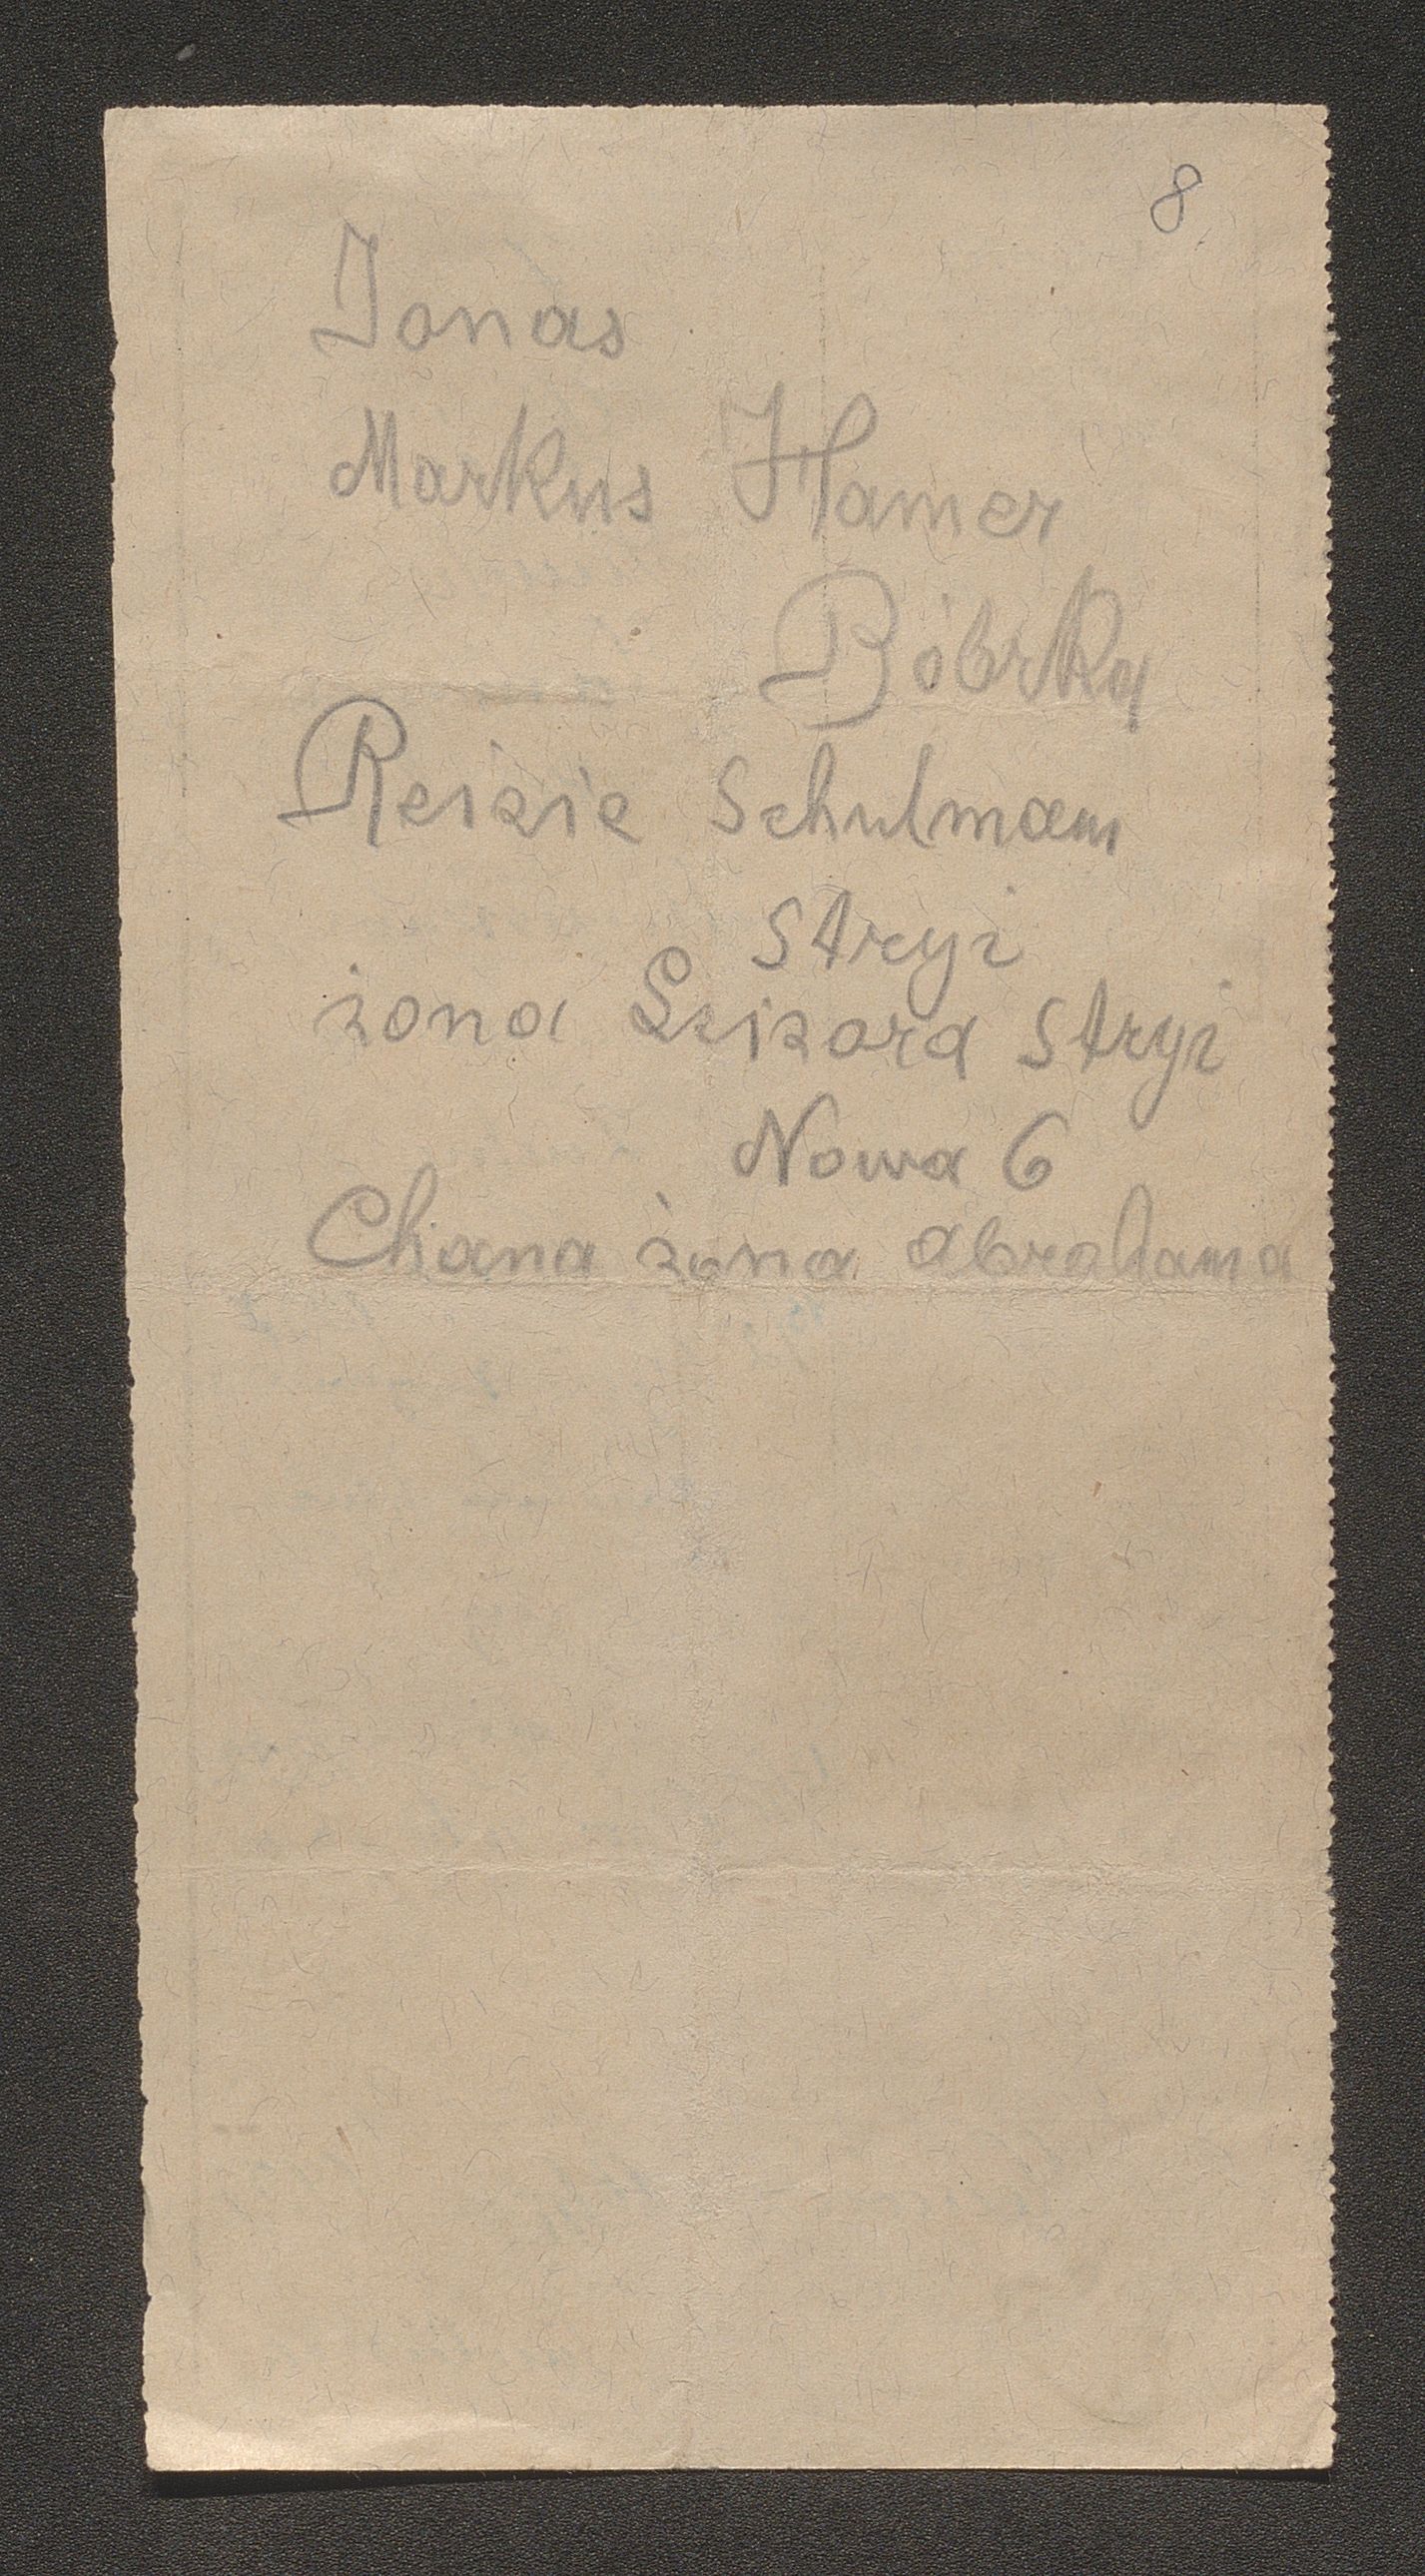 8
Jonas
Markus Hamer
Bóbrka
Reizie Schulmam
Stryi
żona Leizora Stryi
Nowa 6
Chana żona Abrahama